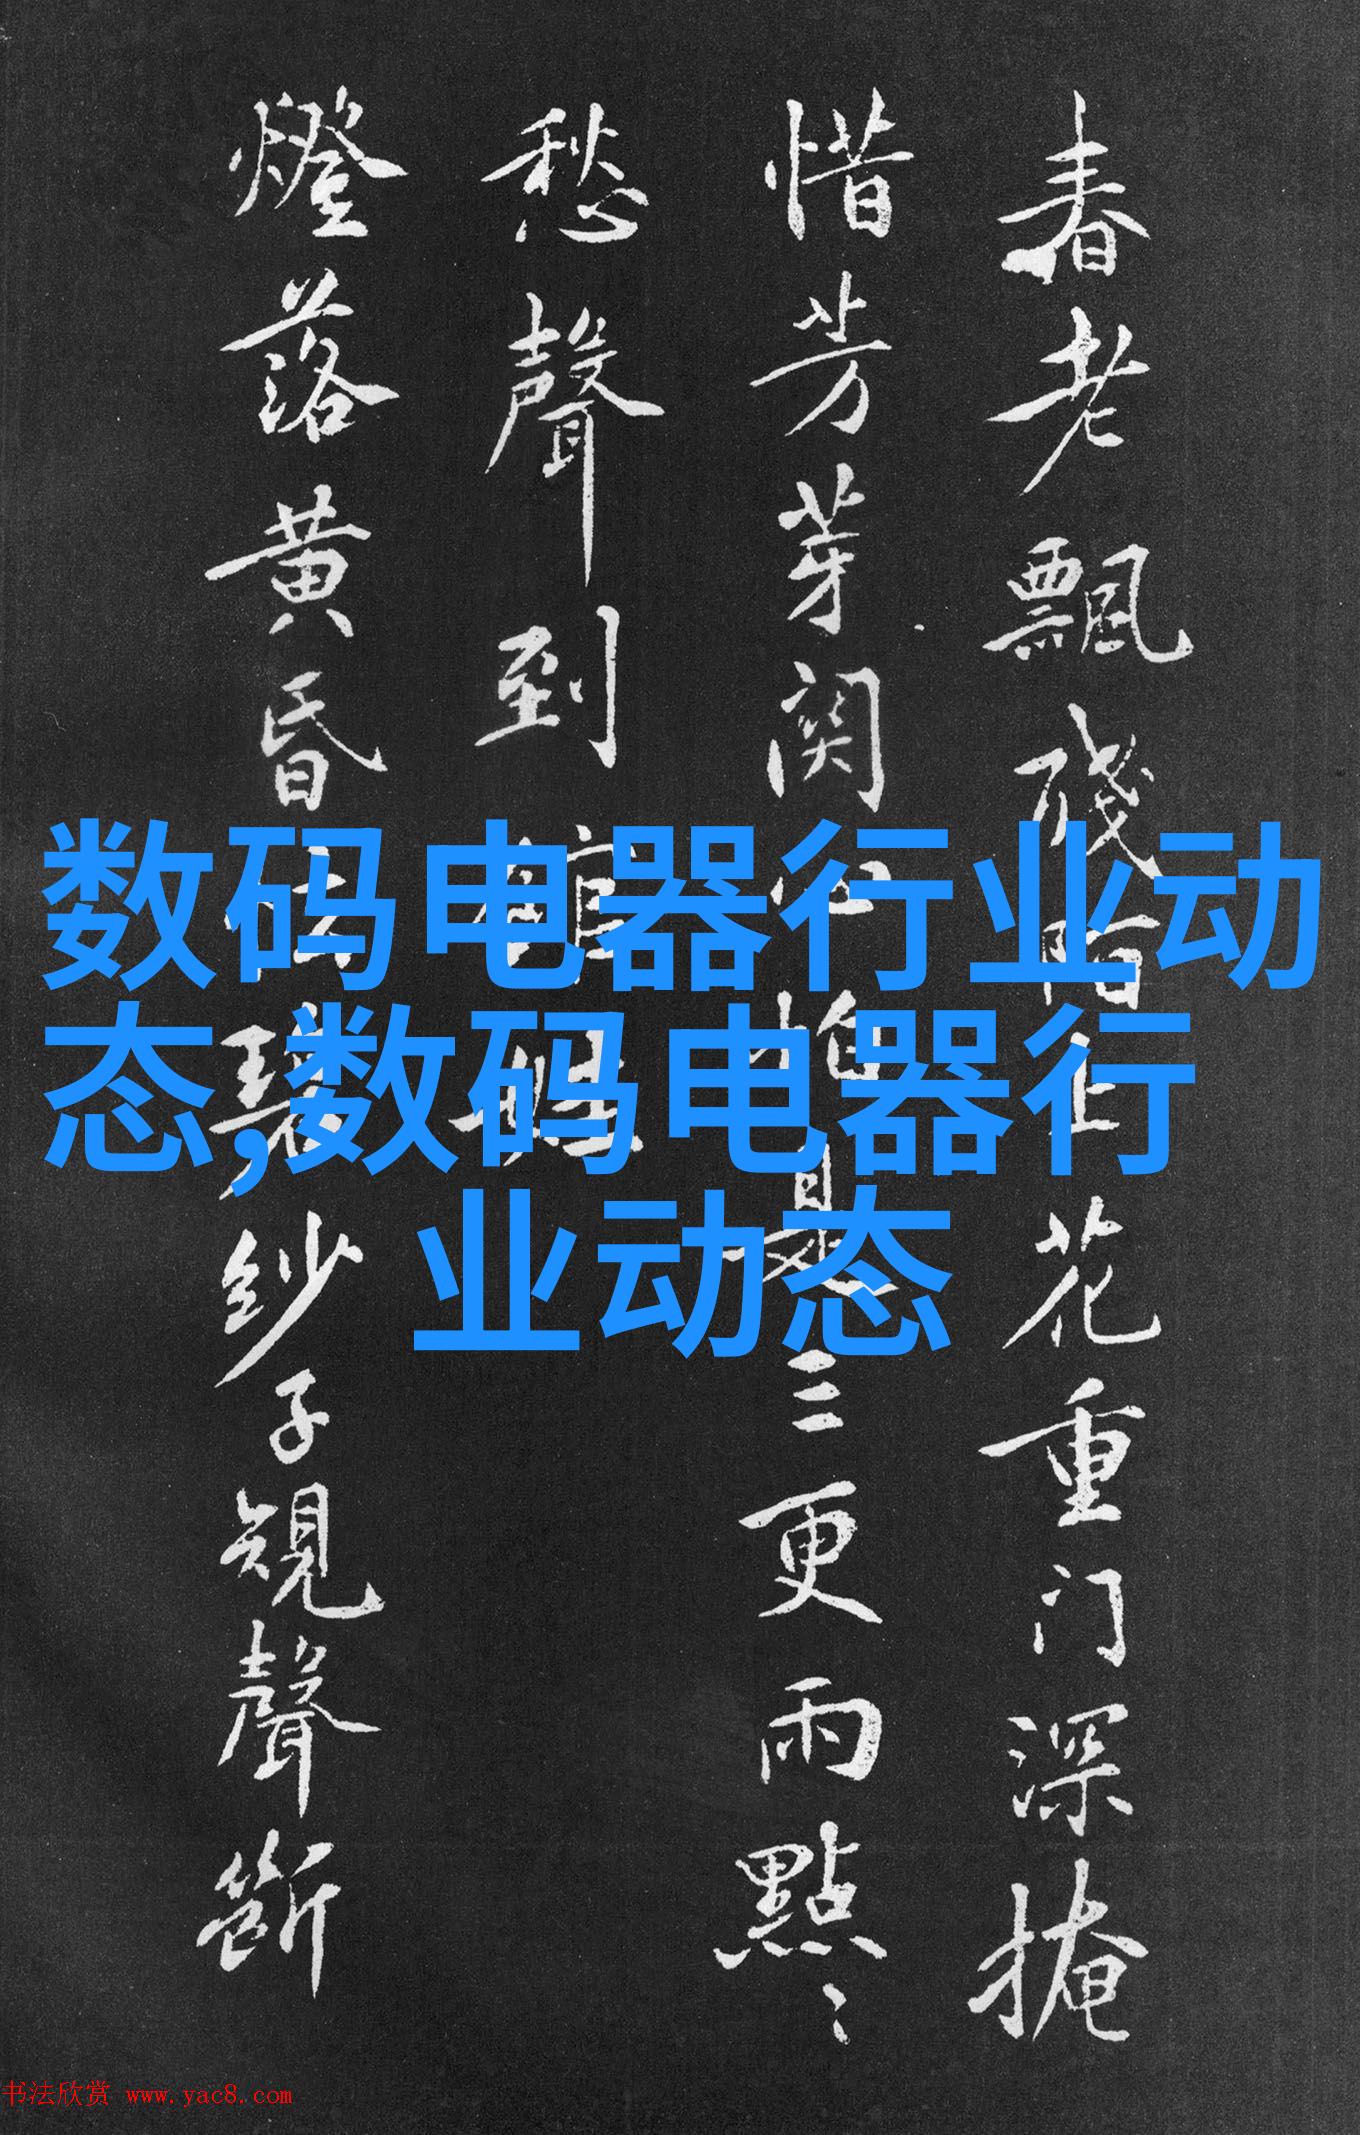 春老飄殘陌上花重门深掩
惜芳芽関心怕三更雨點〻
愁聲到館娃
燈落黄昏碧紗子規聲斷
数码电器行业动
态,数码电器行
业动态
书法欣赏 www.yac8.com